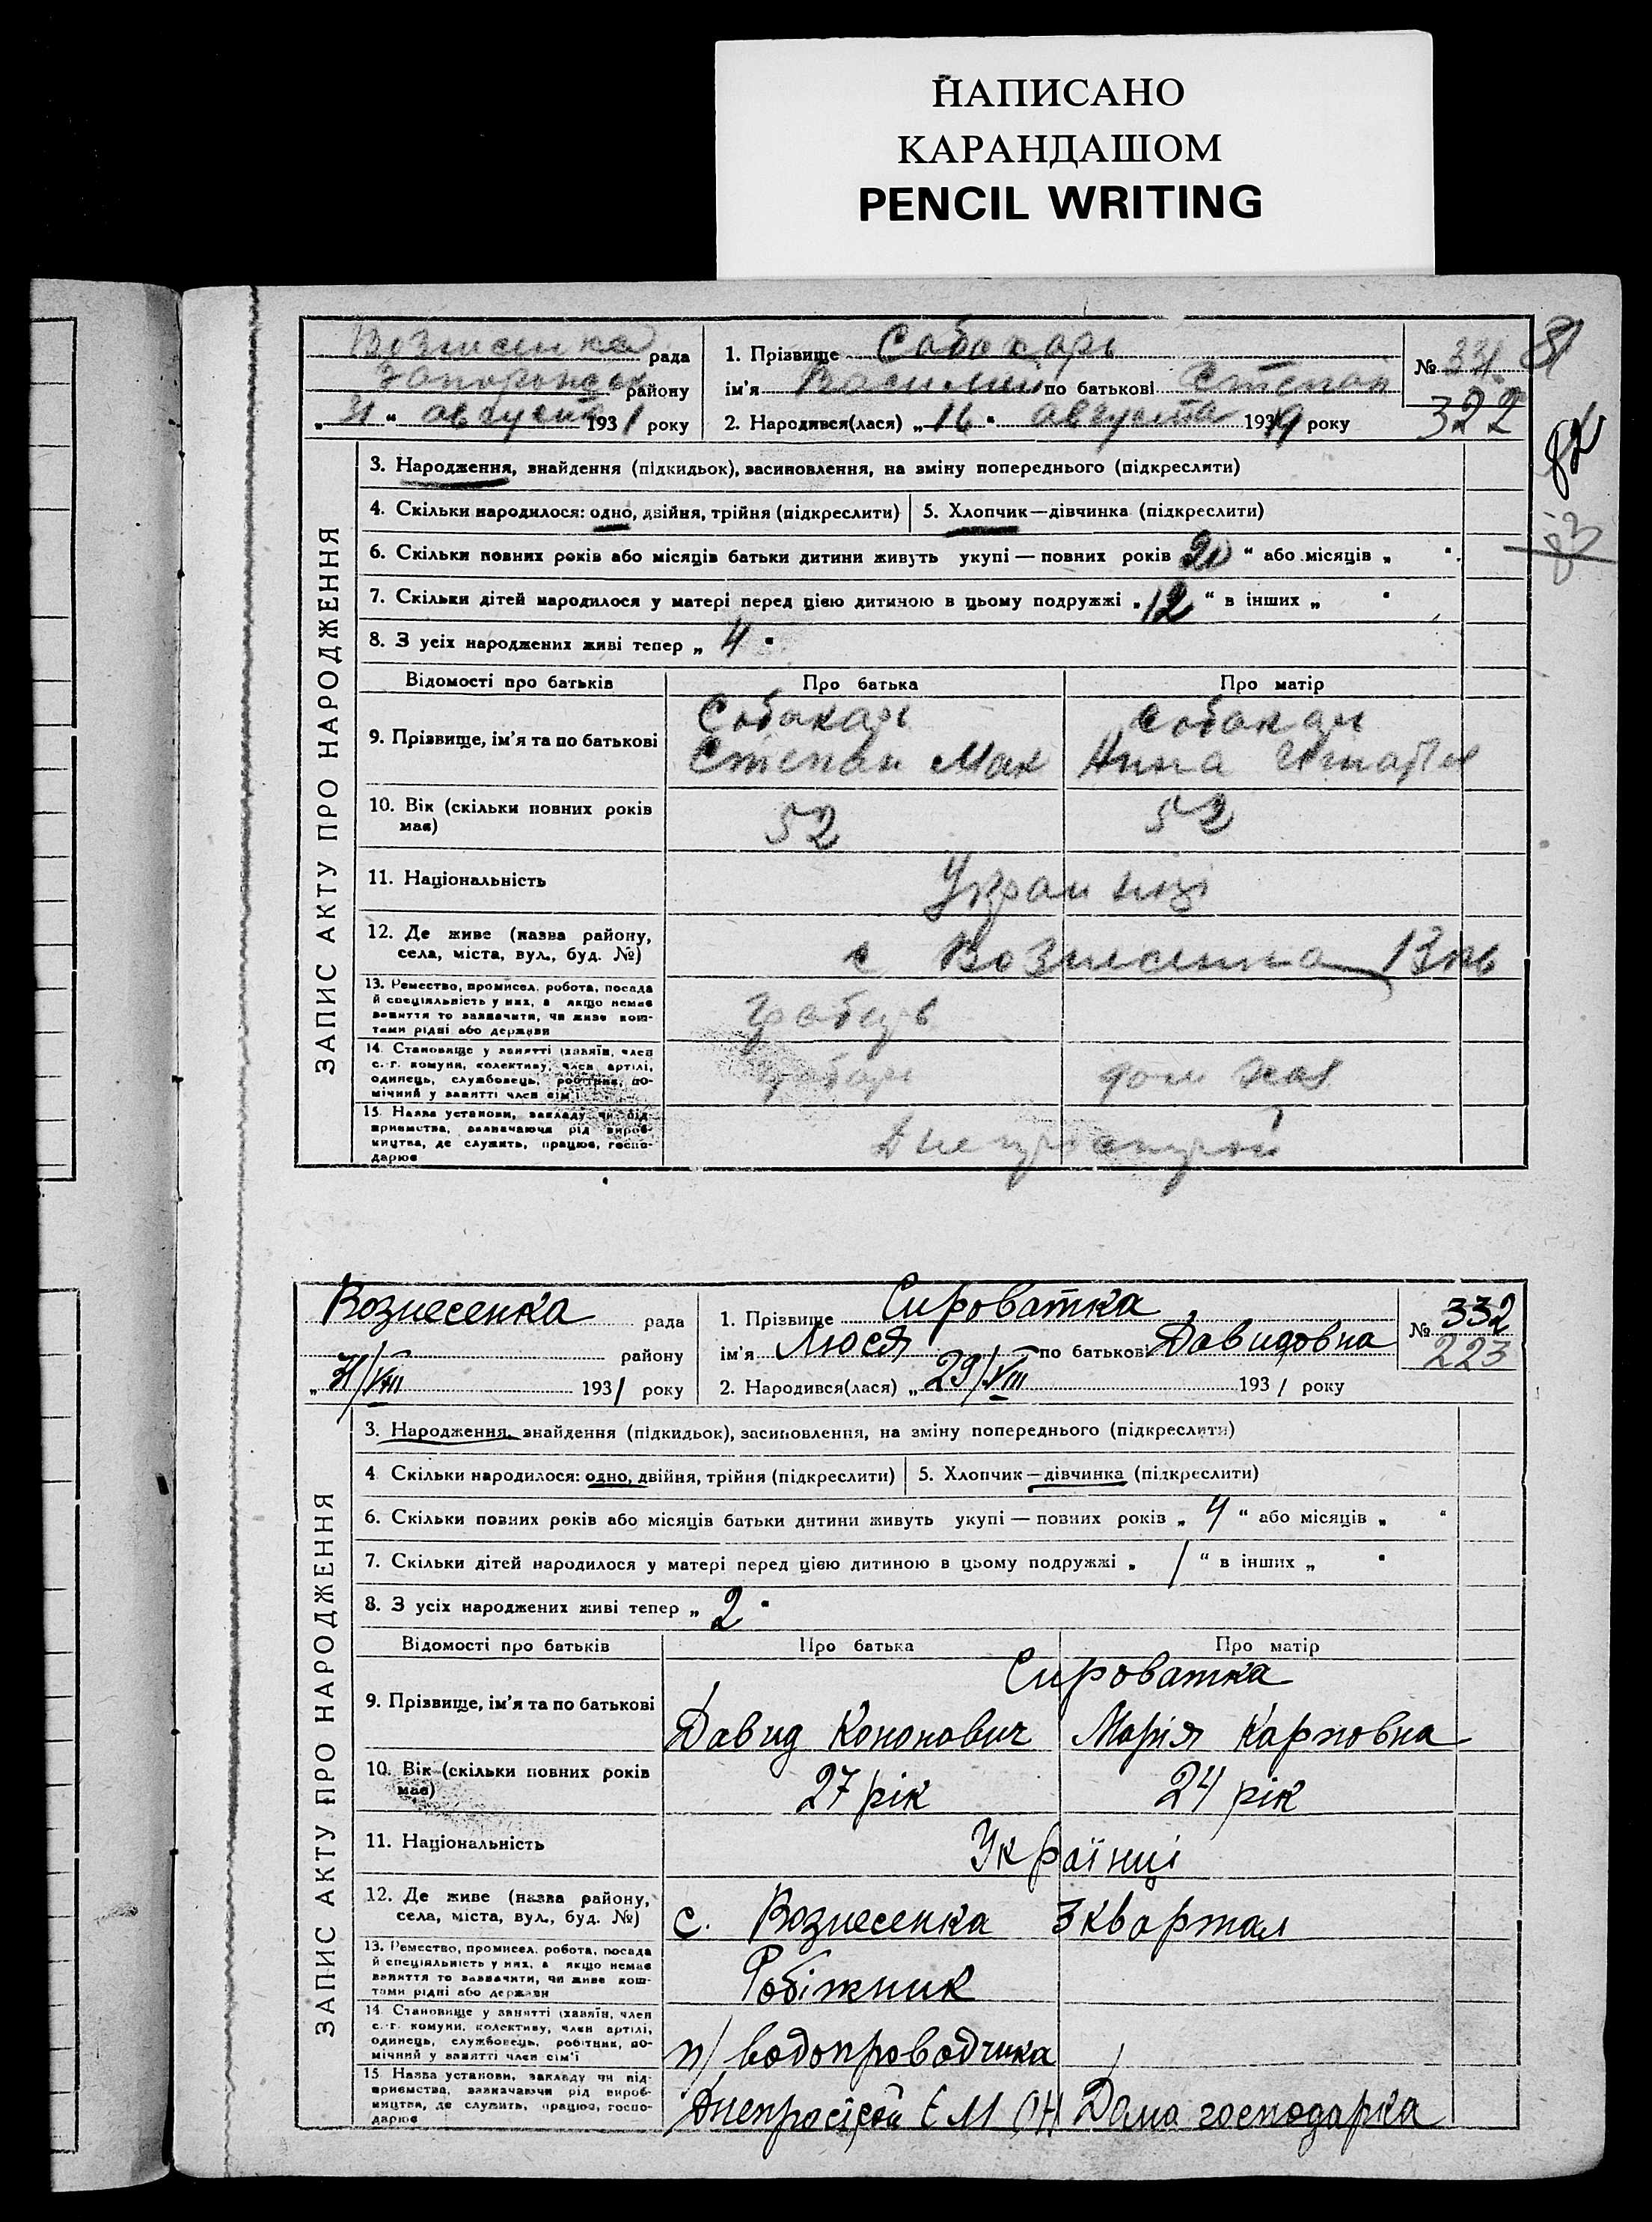 НАПИСАНО
КАРАНДАШОМ
PENCIL WRITING
81
82
83
Вознисенка рада
Запорожск району
„ 31 “ августа 1931 року
1. Прізвище Собокарь
ім’я Василий по батькові Степан
2. Народився(лася) „ 16 “ августа 193 року
№ 331
322
ЗАПИС АКТУ ПРО НАРОДЖЕННЯ
3. Народження, знайдення (підкидьок), засиновлення, на зміну попереднього (підкреслити)
4. Скільки народилося: одно, двійня, трійня (підкреслити) 5. Хлопчик—дівчинка (підкреслити)
6. Скільки повних років або місяців батьки дитини живуть укупі — повних років 20 “ або місяців „ “
7. Скільки дітей народилося у матері перед цією дитиною в цьому подружжі „ 12 “ в інших „ “
8. З усіх народжених живі тепер „ 4 “
Відомості про батьків Про батька Про матір
9. Прізвище, ім’я та по батькові
Собокарь Собокарь
Степан Мак Нина
10. Вік (скільки повних років має) 52 52
11. Національність Украинці
12. Де живе (назва району, села, міста, вул., буд. №) с Вознисенка 13
13. Ремество, промисел, робота, посада
й спеціяльність у них, а якщо немає
заняття то зазначити, чи живе кош-
тами рідні або держави
14. Становище у занятті (хазяїн, член
с.-г. комуни, колективу, член артілі,
одинець, службовець, робітник, по-
мічний у занятті член сім’ї
дом хоз
15. Назва установи, закладу чи під-
приємства, зазначаючи рід вироб-
ництва, де служить, працює, госпо-
дарює
Днепрострой
Вознесенка рада
району
„ 31/VIII 1931 року
1. Прізвище Сироватка
ім’я Люся по батькові Давидовна
2. Народився(лася) „ 29/VIII 1931 року
№ 332
223
ЗАПИС АКТУ ПРО НАРОДЖЕННЯ
3. Народження, знайдення (підкидьок), засиновлення, на зміну попереднього (підкреслити)
4. Скільки народилося: одно, двійня, трійня (підкреслити) 5. Хлопчик—дівчинка (підкреслити)
6. Скільки повних років або місяців батьки дитини живуть укупі — повних років „ 4 “ або місяців „ “
7. Скільки дітей народилося у матері перед цією дитиною в цьому подружжі „ 1 “ в інших „ “
8. З усіх народжених живі тепер „ 2 “
Відомості про батьків Про батька Про матір
9. Прізвище, ім’я та по батькові
Сироватка
Давид Кононович Марія Карповна
10. Вік (скільки повних років має) 27 рік 24 рік
11. Національність Українці
12. Де живе (назва району, села, міста, вул., буд. №) с. Вознесенка 3 квартал
13. Ремество, промисел, робота, посада
й спеціяльність у них, а якщо немає
заняття то зазначити, чи живе кош-
тами рідні або держави
Робітник
14. Становище у занятті (хазяїн, член
с.-г. комуни, колективу, член артілі,
одинець, службовець, робітник, по-
мічний у занятті член сім’ї
п/водопроводчика
15. Назва установи, закладу чи під-
приємства, зазначаючи рід вироб-
ництва, де служить, працює, госпо-
дарює
Днепрострой Дома господарка